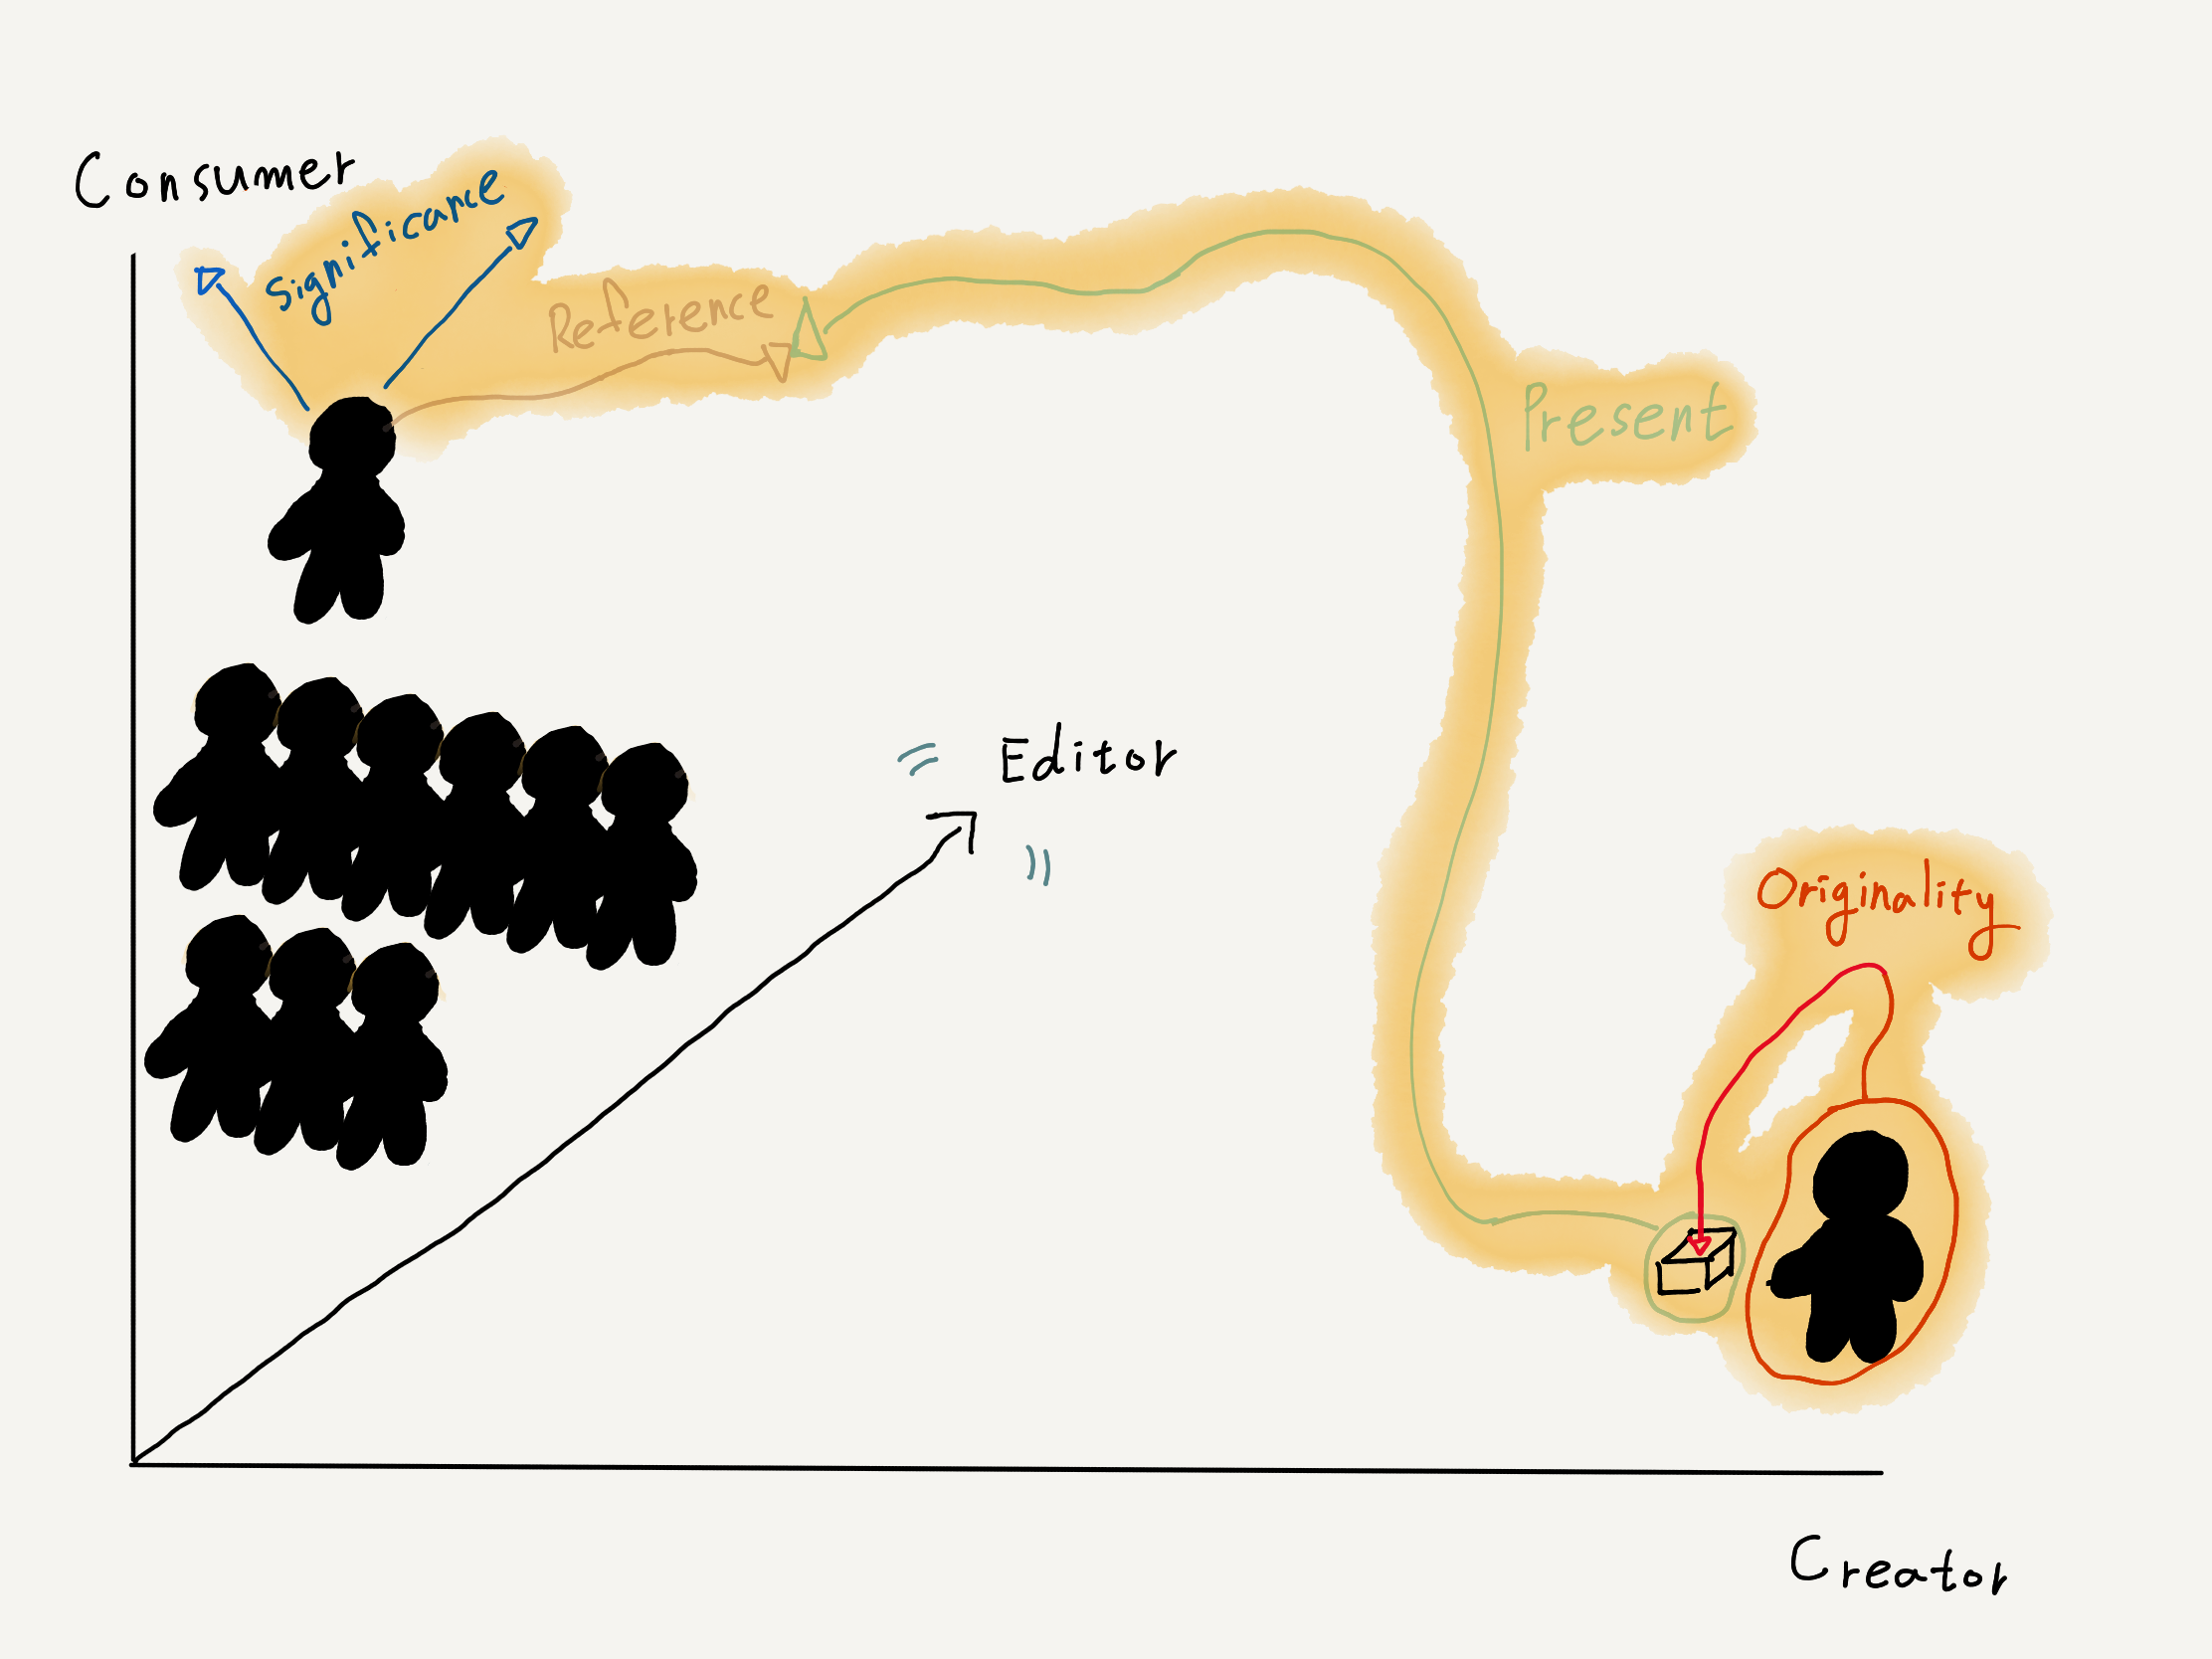 Consumer
significance
Reference
Present
Editor
Originality
Creator